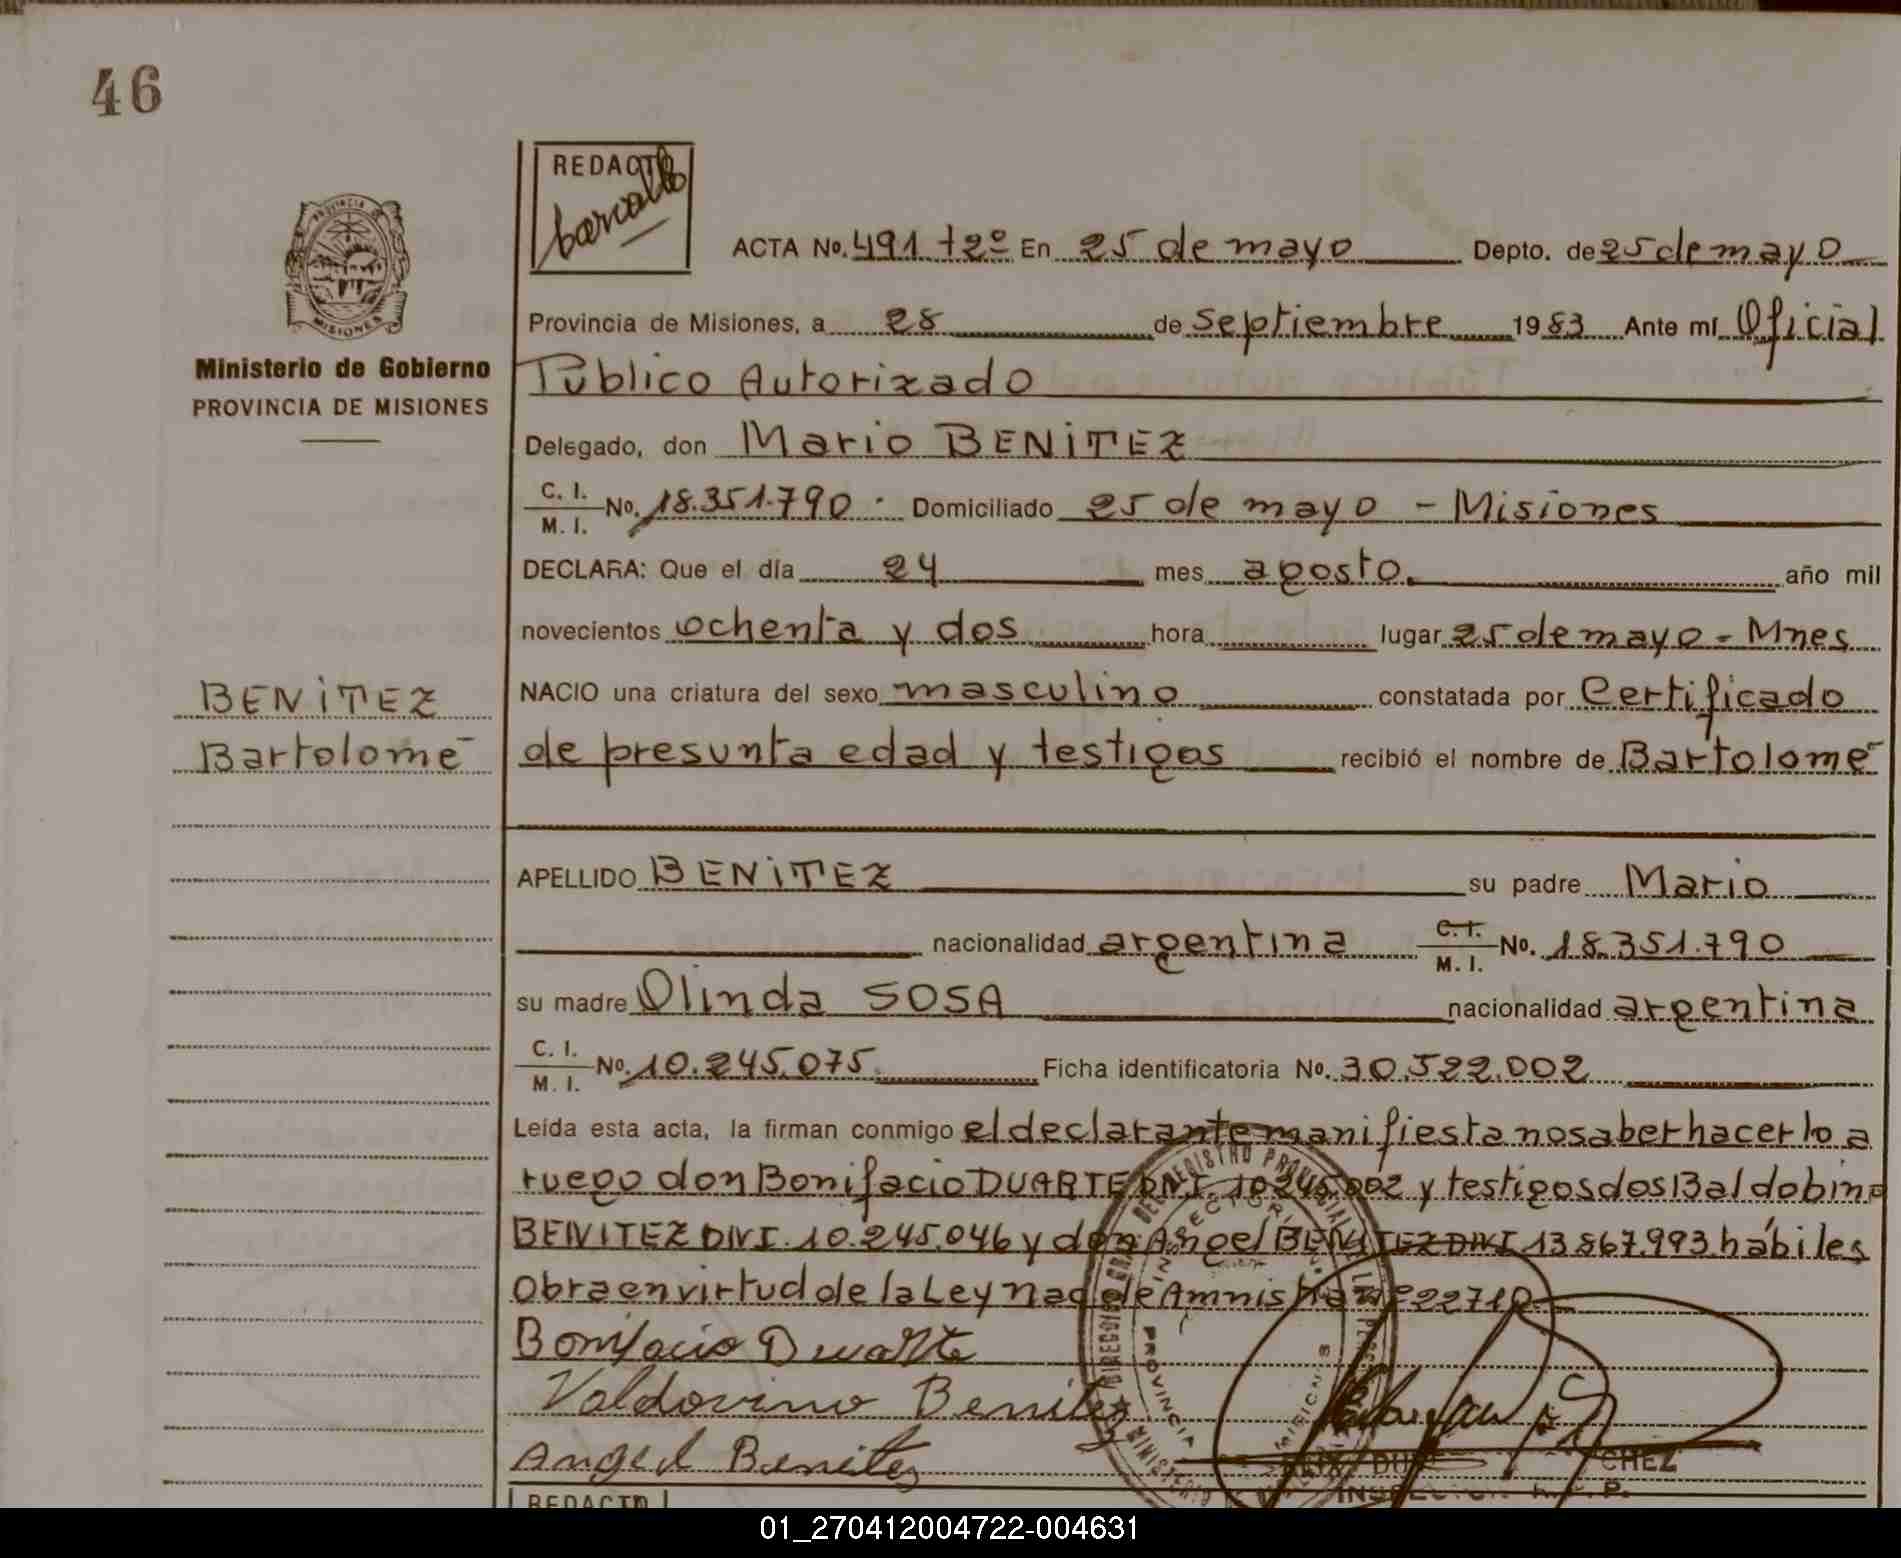 46
REDACTO
barcallo
ACTA No. 491 t2º En 25 de mayo Depto. de 25 de mayo
Provincia de Misiones, a 28 de septiembre 1983 Ante mí Oficial
Público Autorizado
Delegado, don Mario BENITEZ
C. I. / M. I. No. 18.351.790 Domiciliado 25 de mayo - Misiones
DECLARA: Que el día 24 mes agosto. año mil
novecientos ochenta y dos hora lugar 25 de mayo - Mnes
NACIO una criatura del sexo masculino constatada por Certificado
de presunta edad y testigos recibió el nombre de Bartolomé
APELLIDO BENITEZ su padre Mario
nacionalidad argentina C. I. / M. I. No. 18.351.790
su madre Olinda SOSA nacionalidad argentina
C. I. / M. I. No. 10.245.075 Ficha identificatoria No. 30.522.002
Leída esta acta, la firman conmigo el declarante manifiesta no saber hacerlo a
ruego don Bonifacio DUARTE DNI. 10.245.002 y testigos dos Baldobino
BENITEZ DNI. 10.245.046 y don Angel BENITEZ DNI 13.867.993 hábiles
Obra en virtud de la Ley Nac de Amnistia Nº 22710
Bonifacio Duarte
Valdovino Benitez
Angel Benitez
REDACTO
PROVINCIA DE
MISIONES
Ministerio de Gobierno
PROVINCIA DE MISIONES
BENITEZ
Bartolomé
01_270412004722-004631